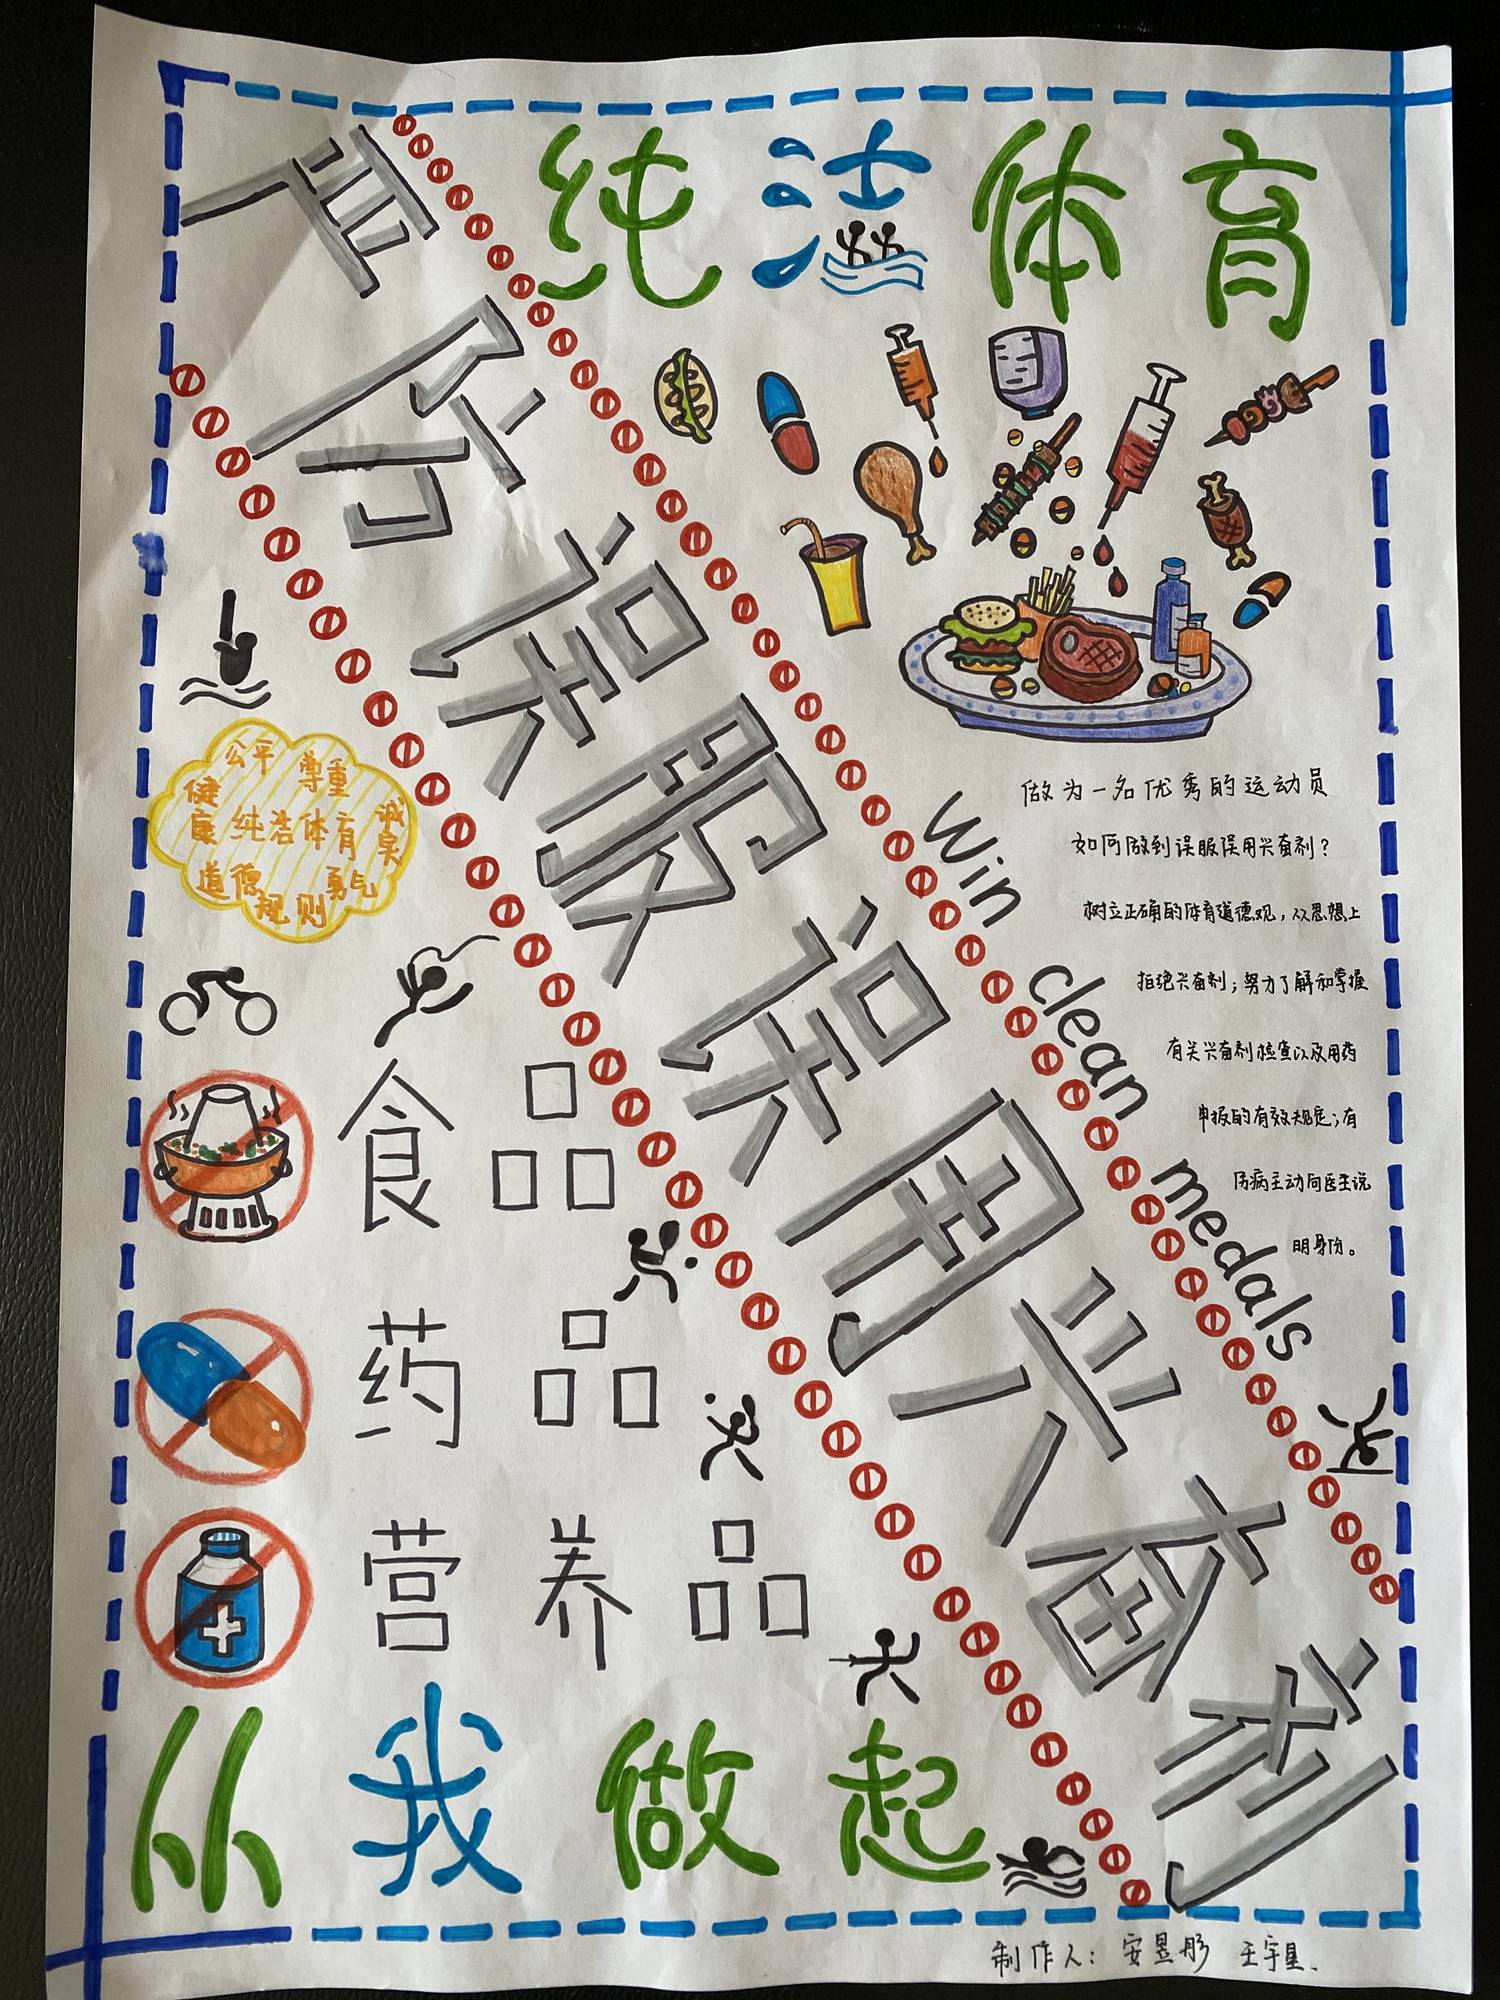 纯洁体育
严防误服误用兴奋剂
公平 尊重
健康 纯洁体育 诚实
道德 规则 勇气
做为一名优秀的运动员
如何做到误服误用兴奋剂？
树立正确的体育道德观，从思想上
拒绝兴奋剂；努力了解和掌握
有关兴奋剂检查以及用药
申报的有效规定；有
伤病主动向医生说
明身份。
Win clean medals
食品
药品
营养品
从我做起
制作人：安昱彤 王宇星.